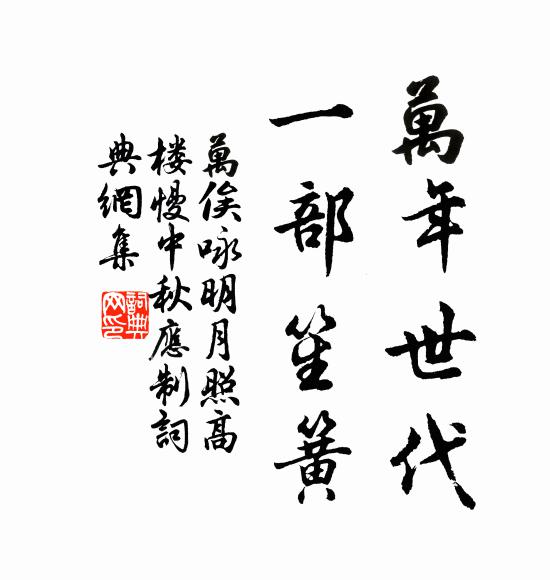 萬年世代
一部笙簧
萬俟咏明月照高
楼慢中秋應制詞
典網集
詞典
网印